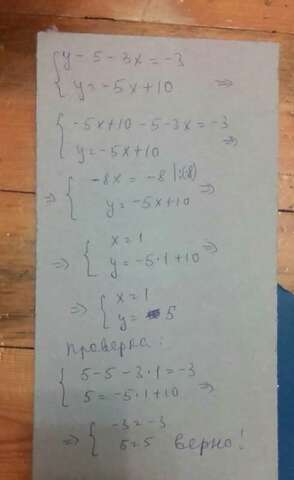 { y - 5 - 3x = -3
{ y = -5x + 10 ⇒
{ -5x + 10 - 5 - 3x = -3
{ y = -5x + 10 ⇒
⇒ { -8x = -8 |:(-8)
{ y = -5x + 10 ⇒
⇒ { x = 1
{ y = -5 · 1 + 10 ⇒
⇒ { x = 1
{ y = 5
Проверка:
{ 5 - 5 - 3 · 1 = -3
{ 5 = -5 · 1 + 10 ⇒
⇒ { -3 = -3
{ 5 = 5 верно!